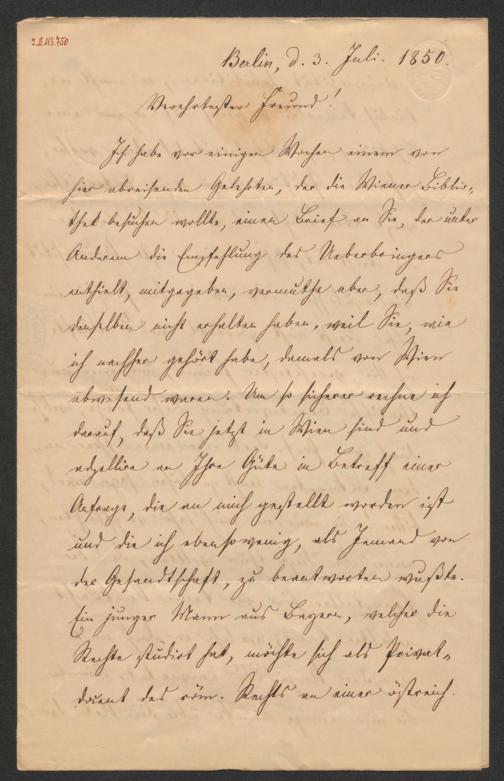 I.N. 113.750
Berlin, d. 3. Juli. 1850.
Verehrtester Freund!
Ich habe vor einigen Wochen einem von
hier abreisenden Gelehrten, der die Wiener Biblio-
thek besuchen wollte, einen Brief an Sie, der unter
Anderem die Empfehlung des Ueberbringers
enthielt, mitgegeben, vermuthe aber, daß Sie
denselben nicht erhalten haben, weil Sie, wie
ich nachher gehört habe, damals von Wien
abwesend waren. Um so sicherer rechne ich
darauf, daß Sie jetzt in Wien sind und
appellire an Ihre Güte in Betreff einer
Anfrage, die an mich gestellt worden ist
und die ich ebensowenig, als Jemand von
der Gesandtschaft, zu beantworten wußte.
Ein junger Mann aus Bayern, welcher die
Rechte studirt hat, möchte sich als Privat-
docent des röm. Rechts an einer östreich.